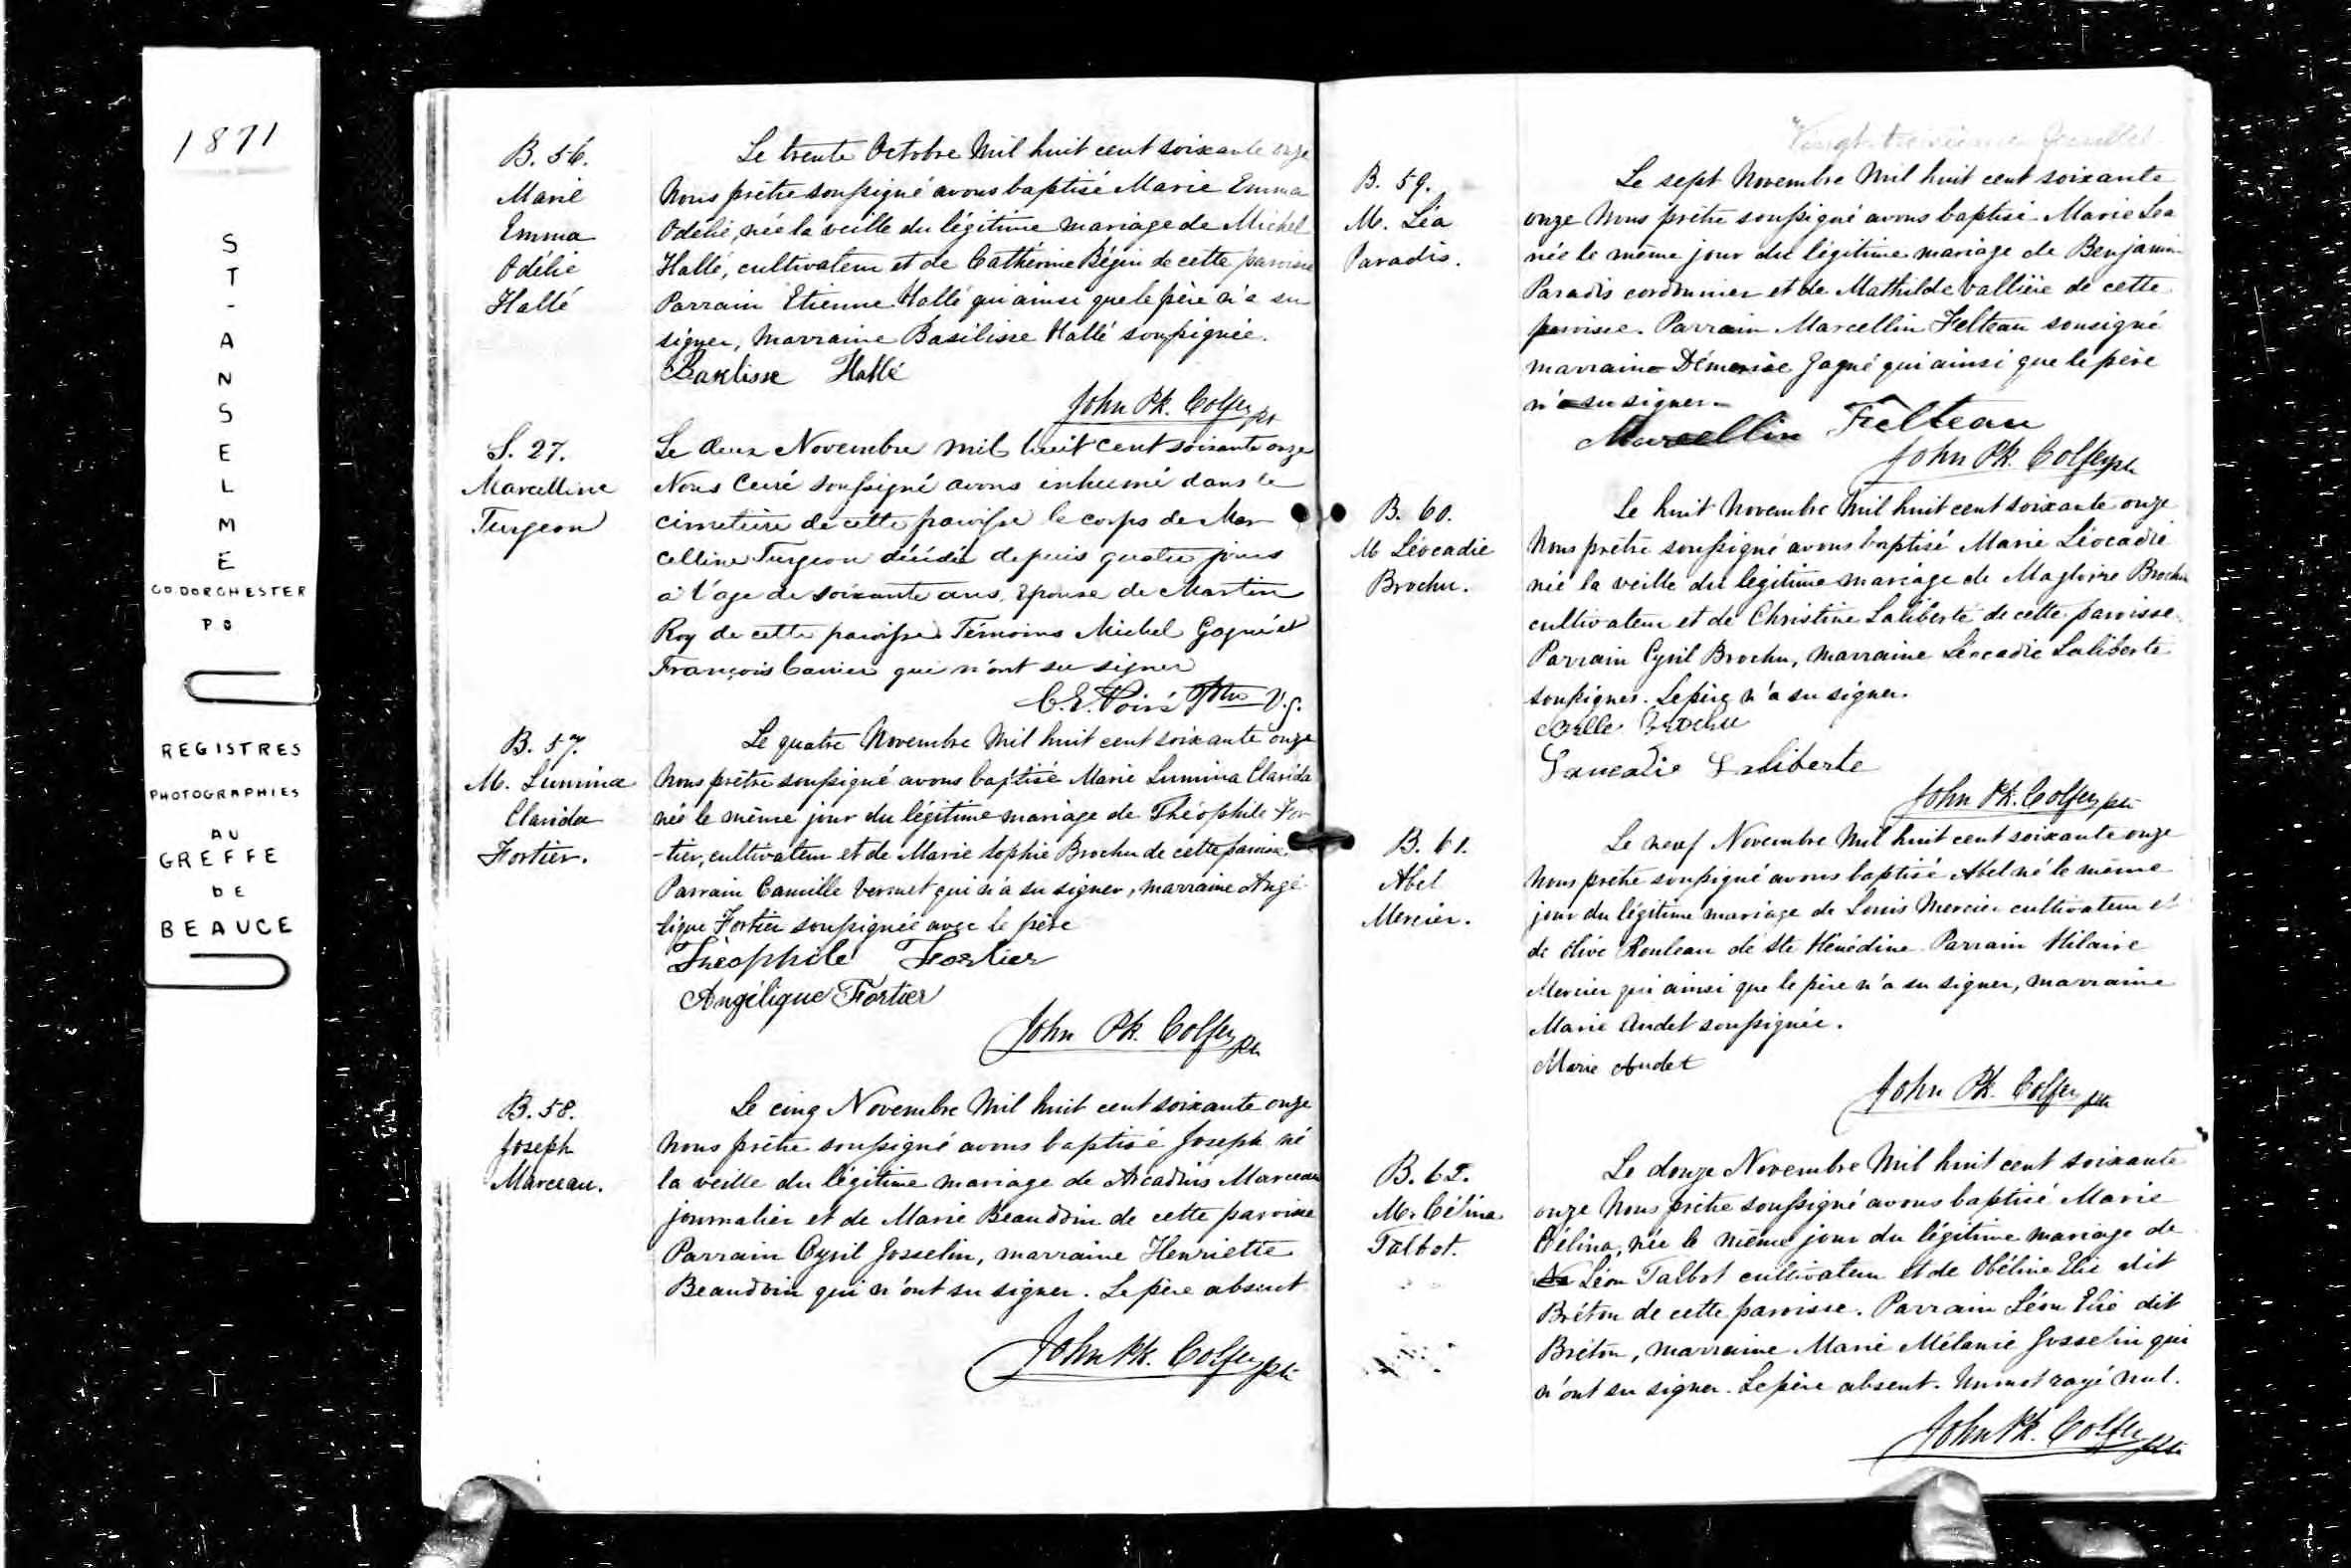 1871
S
T
-
A
N
S
E
L
M
E
CO. DORCHESTER
P Q
REGISTRES
PHOTOGRAPHIES
AU
GREFFE
DE
BEAUCE
B. 56.
Marie
Emma
Odélie
Hallé
Le trente Octobre Mil huit cent soixante onze
Nous prêtre soussigné avons baptisé Marie Emma
Odélie, née la veille du légitime mariage de Michel
Hallé, cultivateur et de Cathérine Bégin de cette paroisse
Parrain Etienne Hallé qui ainsi que le père n'a su
signer, Marraine Basilisse Hallé soussignée.
Basilisse Hallé
John Pk. Colfer ptr
S. 27.
Marcelline
Turgeon
Le deux Novembre mil huit cent soixante onze
Nous Curé soussigné avons inhumé dans le
cimetière de cette paroisse le corps de Mar
celline Turgeon décédée depuis quatre jours
à l'age de soixante ans, Epouse de Martin
Roy de cette paroisse Témoins Michel Gagné et
François Carrier qui n'ont su signer
C. E. Poiré Ptre V.G.
B. 57.
M. Lumina
Clarida
Fortier.
Le quatre Novembre Mil huit cent soixante onze
Nous prêtre soussigné avons baptisé Marie Lumina Clarida
née le même jour du légitime mariage de Théophile For
-tier, cultivateur et de Marie Sophie Brochu de cette paroisse.
Parrain Camille Vermet qui n'a su signer, marraine Angé-
lique Fortier soussignée avec le père
Théophile Fortier
Angélique Fortier
John Pk. Colfer ptr
B. 58.
Joseph
Marceau.
Le cinq Novembre Mil huit cent soixante onze
Nous prêtre soussigné avons baptisé Joseph né
la veille du légitime mariage de Arcadius Marceau
journalier et de Marie Beaudoin de cette paroisse
Parrain Cyril Josselin, marraine Henriette
Beaudoin qui n'ont su signer. Le père absent
John Pk. Colfer ptr
Vingt-troisième feuillet
B. 59.
M. Léa
Paradis.
Le sept Novembre Mil huit cent soixante
onze Nous prêtre soussigné avons baptisé Marie Léa
née le même jour du légitime mariage de Benjamin
Paradis cordonnier et de Mathilde Vallière de cette
paroisse. Parrain Marcellin Felteau sousigné
marraine Démerise Gagné qui ainsi que le père
n'a su signer.
Marcellin Felteau
John Pk. Colfer ptr
B. 60.
M Léocadie
Brochu.
Le huit Novembre Mil huit cent soixante onze
Nous prêtre soussigné avons baptisé Marie Léocadie
née la veille du légitime mariage de Magloire Brochu
cultivateur et de Christine Laliberté de cette paroisse.
Parrain Cyril Brochu, Marraine Léocadie Laliberté
soussignés. Le père n'a su signer.
Brochu
Laliberte
John Pk. Colfer ptr
B. 61.
Abel
Mercier.
Le neuf Novembre Mil huit cent soixante onze
Nous prêtre soussigné avons baptisé Abel né le même
jour du légitime mariage de Louis Mercier cultivateur et
de Olive Rouleau de Ste Hénédine Parrain Hilaire
Mercier qui ainsi que le père n'a su signer, marraine
Marie Audet soussignée.
Marie Audet
John Pk. Colfer ptr
B. 62.
M. Célina
Talbot.
Le douze Novembre Mil huit cent soixante
onze Nous prêtre soussigné avons baptisé Marie
Célina, née le même jour du légitime mariage de
Léon Talbot cultivateur et de Obéline Elie dit
Bréton de cette paroisse. Parrain Léon Elie dit
Bréton, marraine Marie Mélanie Josselin qui
n'ont su signer. Le père absent. Un mot rayé nul.
John Pk. Colfer ptr